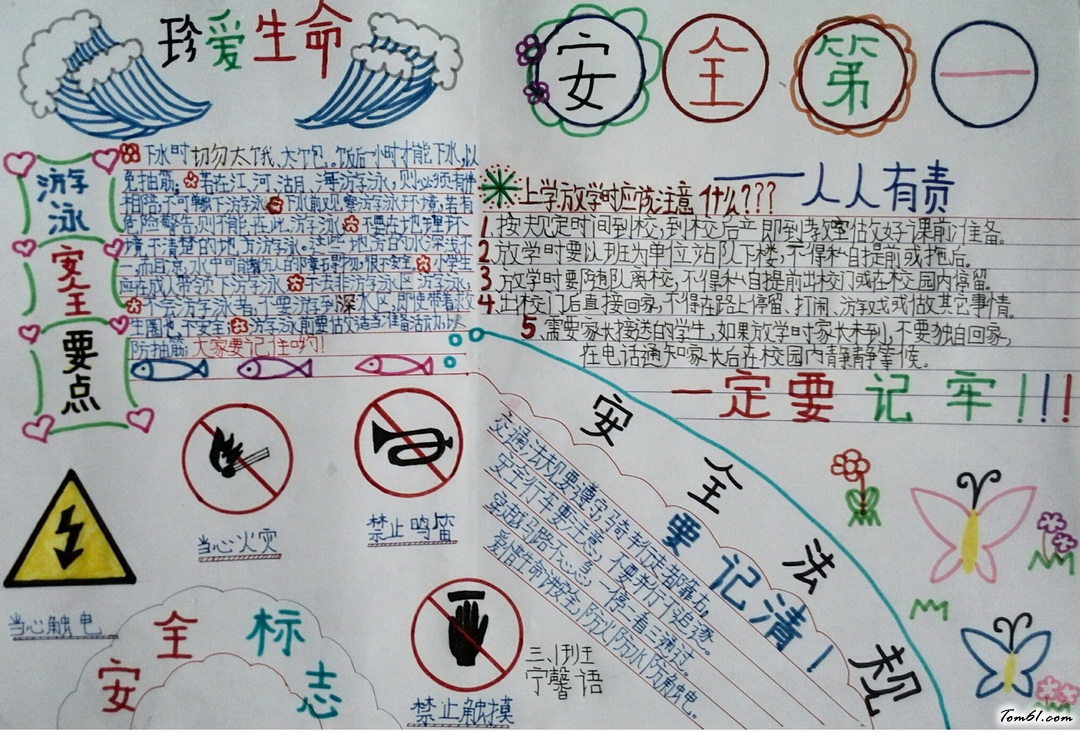 珍爱生命
安全第一
——人人有责
游泳
安全
要点
下水时切勿太饿、太饱。饭后一小时才能下水,以
免抽筋。若在江、河、湖、海游泳,则必须有伴
相陪,不可单独下游泳。下水前观察游泳环境,若有
危险警告,则不能在此游泳。不要在地理环
境不清楚的地方游泳。这些地方的水深浅不
一,而且凉,水中可能有伤人的障碍物,很不安全。小学生
应在成人带领下游泳。不去非游泳区游泳,
不会游泳者,不要游到深水区,即使带着救
生圈也不安全。游泳前要做适当准备活动,以
防抽筋。大家要记住哟!
上学、放学时应该注意什么???
1.按规定时间到校,到校后立即到教室做好课前准备。
2.放学时要以班为单位站队下楼,不得私自提前或拖后。
3.放学时要随队离校,不得私自提前出校门或在校园内停留。
4.出校门后直接回家,不得在路上停留、打闹、游戏或做其它事情。
5、需要家长接送的学生,如果放学时家长未到,不要独自回家,
在电话通知家长后在校园内静静等候。
一定要记牢!!!
当心火灾
禁止鸣笛
当心触电
禁止触摸
安全标志
三、1班
宁馨语
安全法规
要记清!
交通法规要遵守,骑车行走都靠右。
安全行车要注意,不要并行不追逐。
穿越马路不心急,一停二看三通过。
爱惜生命讲安全,防火防水防触电。
Tom61.com